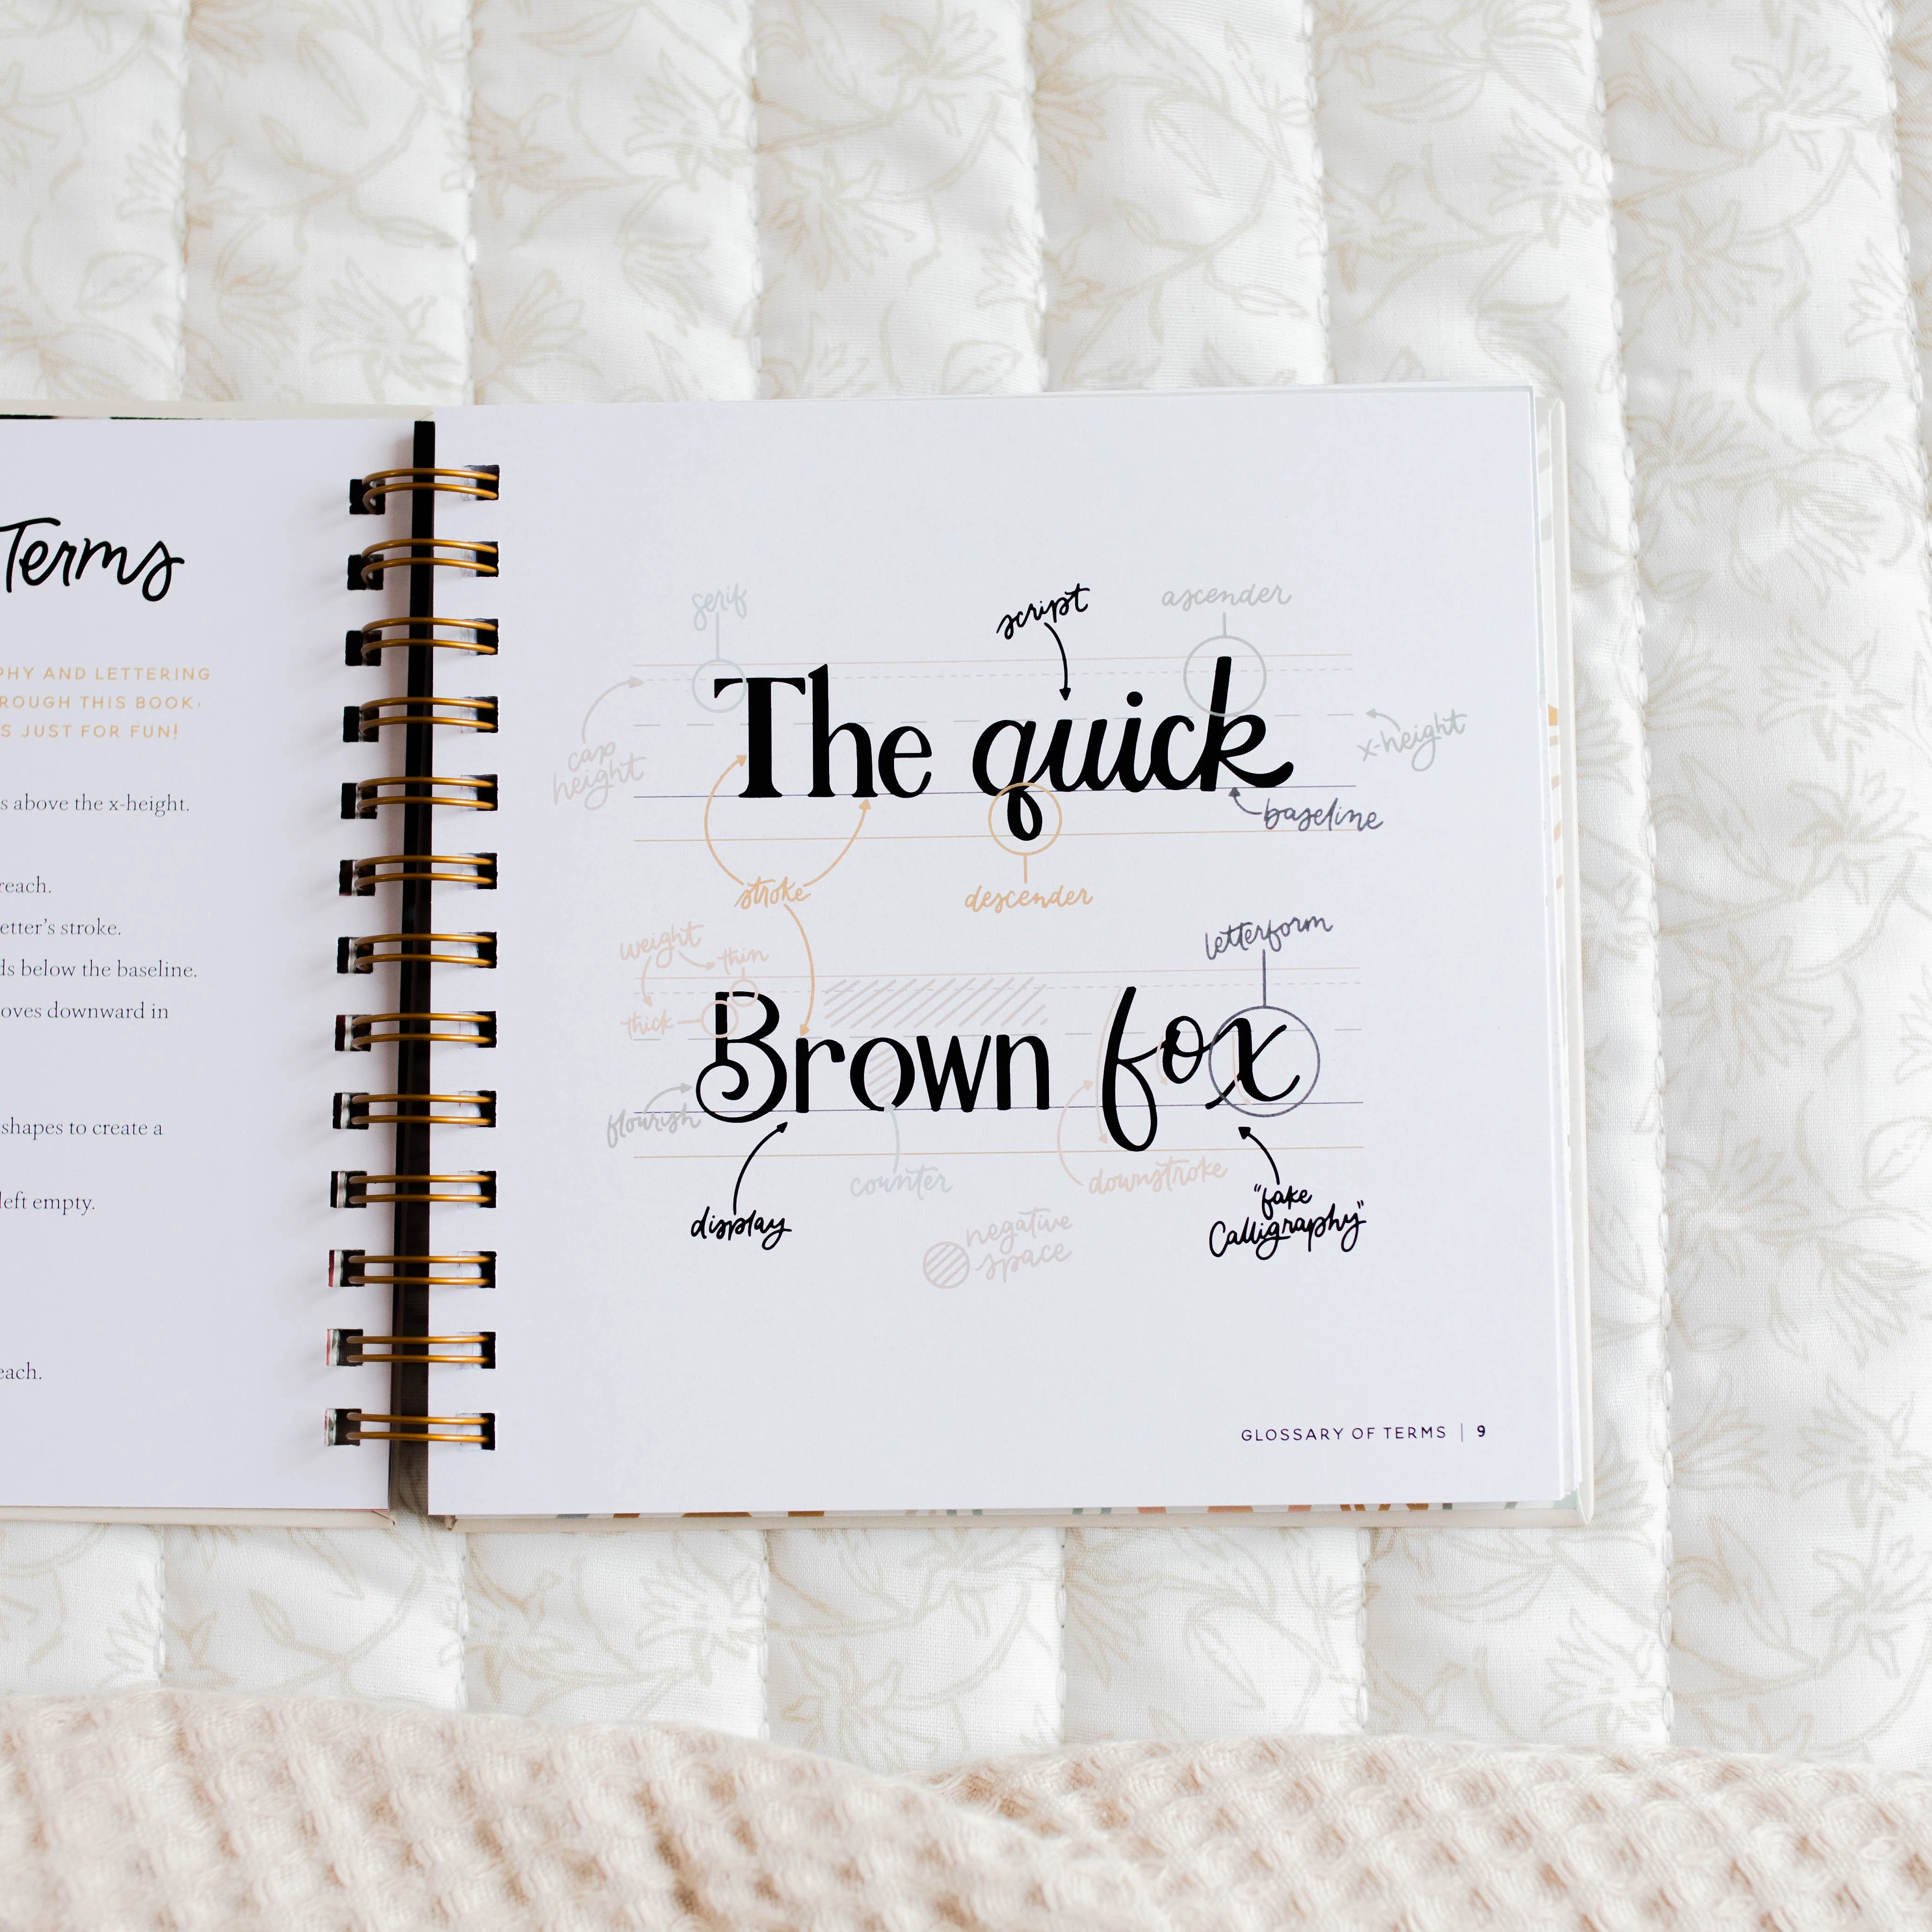 Terms
PHY AND LETTERING
ROUGH THIS BOOK,
S JUST FOR FUN!
s above the x-height.
reach.
etter's stroke.
ds below the baseline.
oves downward in
shapes to create a
left empty.
each.
serif
script
ascender
cap
height
The quick
x-height
baseline
stroke
descender
weight
thin
thick
letterform
Brown fox
flourish
display
counter
downstroke
"fake
Calligraphy"
negative
space
GLOSSARY OF TERMS | 9